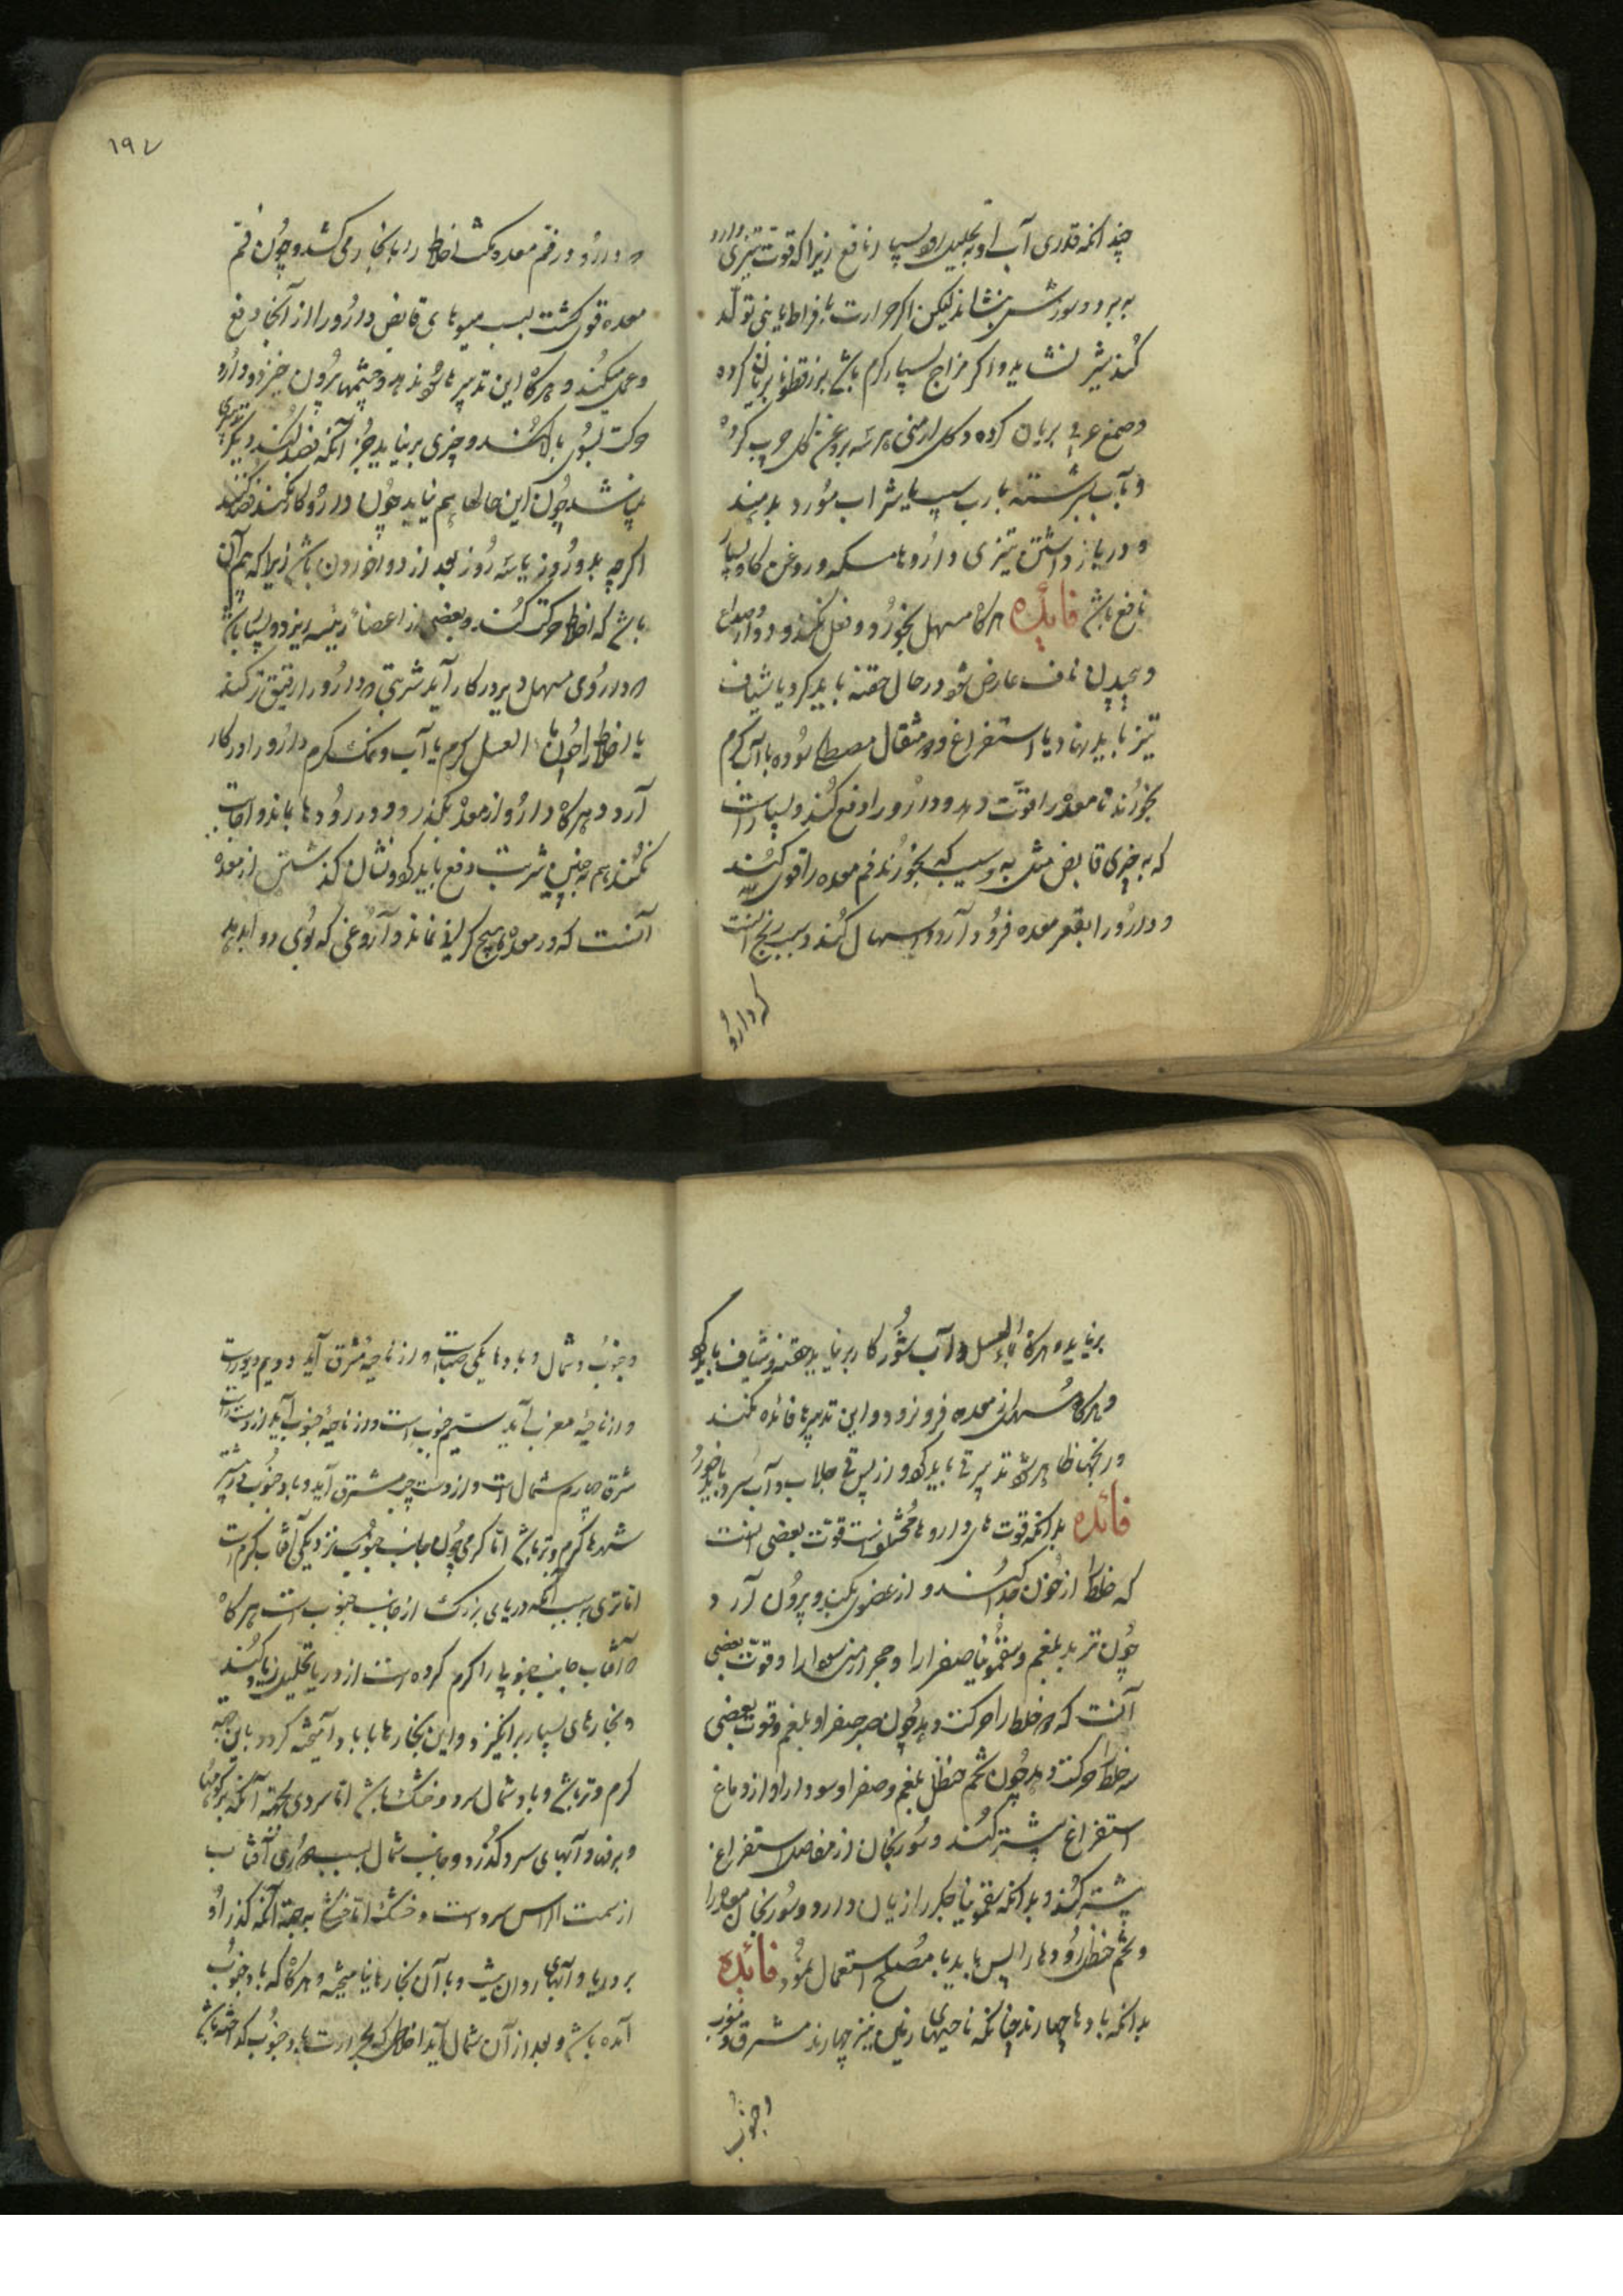 چند انکه قدری آب او به تحلیل رود بسیار نافع زیرا که قوت تیزی دارو
به برد و سوزش بنشاند لیکن اگر حرارت بافراط یا تبی تولد
کند شیر نشاید و اکر مزاج بسیار کرم باشد بزرقطونا بریان کرده
و صمغ عربی بریان کرده و کل ارمنی هر سه بروغن کل چرب کرده
و بآب سرشته با رب سیب یا شراب مورد بدهند
و در باز داشتن تیزی داروها مسکه و روغن کاو بسیار
نافع باشد فائده هرکاه مسهل بخورد و فعل نکند و دوار و صداع
و پیچیدن ناف عارض شود در حال حقنه باید کرد یا شیاف
تیز باید نهاد یا استفراغ دو مثقال مصطکی سوده با آب کرم
بخورند تا معده را قوت دهد و دارو را دفع کند و بسیار است
که به چیزی قابض مثل به و سیب که بخورند فم معده را قوی کند
و دارو را بقعر معده فرود آرد و اسهال کند و سبب این آنست
که دارو
١٩٧
که دارو در فم معده باشد اخلاط را بانجا می کشد و چون فم
معده قوی کشت بسبب میوهای قابض دارو را از آنجا دفع
و عمل میکند و هرکاه این تدبیرها سود ندهد و چشمها بیرون خیزد و دارو
حرکت بسوی بالا کند و چیزی برنیاید جز آنکه فصد کنند دیکر تدبیری
نباشد چون این حالها هم نیاید چون دارو کار نکند فصد کنند
اکرچه بدو روز یا سه روز بعد از دوا خوردن باشد زیرا که بیم آن
باشد که اخلاط حرکت کنند و ببعضی از اعضاء رئیسه ریزد و بسیار باشد
که داروی مسهل دیر در کار آید شربتی که دارو را رقیق تر کند
یا اخلاط را چون ماء العسل کرم یا آب و نمک کرم دارو را در کار
آرد و هرکاه دارو از معده بکذرد و در رودها بماند و اجابت
نکند هم چنین شربت دفع باید کرد و نشان کذشتن از معده
آنست که در معده هیچ کرانی نماند و آروغی که بوی دوا دهد
برنیاید و هرکاه ماء العسل و آب شور کار برنیاید حقنه و شیاف باید کرد
و هرکاه مسهل از معده فرو نرود و این تدبیرها فائده نکند
در انتها ظاهر شود تدبیر قی باید کرد و از پس قی جلاب و آب سرد باید خورد
فائده بدانکه قوت های داروها مختلف است قوت بعضی آنست
که خلط از خون جدا کند و از عضوی بکند و بیرون آرد
چون تربد بلغم و سقمونیا صفرا را و حجر ارمنی سودا را و قوت بعضی
آنست که دو خلط را حرکت دهد چون صبر صفرا و بلغم و قوت بعضی
سه خلط حرکت دهد چون شحم حنظل بلغم و صفرا و سودا را و از دماغ
استفراغ بیشتر کند و سورنجان از مفاصل استفراغ
بیشتر کند و بدانکه سقمونیا جکر را زیان دارد و سورنجان معده را
و شحم حنظل رودها را پس باید با مصلح استعمال نمود فائده
بدانکه بادها چهارند چنانکه ناحیتهای زمین نیز چهارند مشرق و مغرب
و جنوب
و جنوب و شمال و بادها یکی صباست و از ناحیه مشرق آید دویم دبورست
و از ناحیهٔ مغرب آید سیم جنوب است و از ناحیهٔ جنوب آید از دست راست
مشرق چهارم شمال است و از دست چپ مشرق آید و باد جنوب در بیشتر
شهرها کرم و تر باشد اما کرمی چون جانب جنوب بنزدیکی آفتاب کرم است
اما تری بسبب آنکه دریای بزرک از جانب جنوب است هرکاه
که آفتاب جانب جنوب را کرم کرده است از دریا تحلیل زیاد کند
و بخارهای بسیار برانکیزد و این بخارها با باد آمیخته کردد باین جهه
کرم و تر باشد و باد شمال سرد و خشک باشد اما سردی بجهة آنکه بر کوهها
و برفها و آبهای سرد کذرد و جانب شمال بسبب دوری آفتاب
از سمت الراس سرد است و خشک اما خشکی بجهة آنکه کذر او
بر دریا و آبهای روان نیست و با آن بخارها نیامیخته و هرکاه که باد جنوب
آمده باشد و بعد از آن شمال آید اخلاطی که بحرارت باد جنوب کداخته باشد